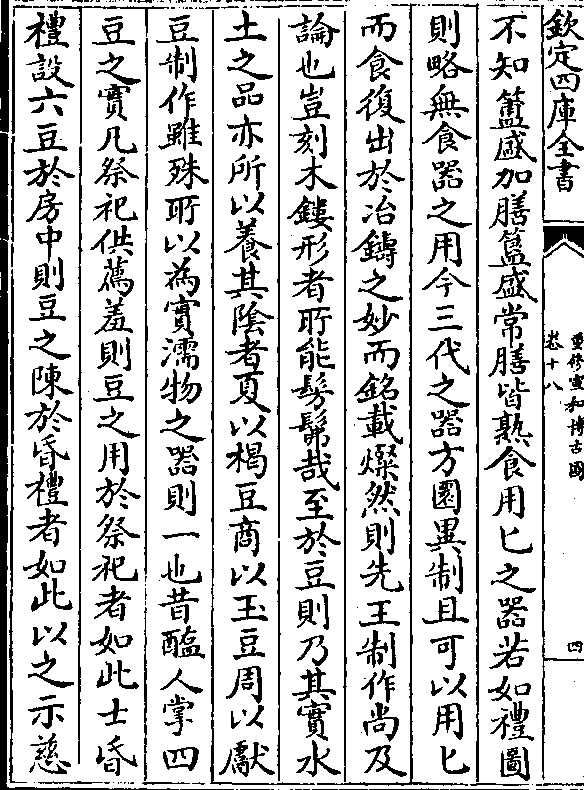 欽定四庫全書
重修宣和博古圖
卷十八
四
不知簠盛加膳簋盛常膳皆熟食用匕之器若如禮圖
則略無食器之用今三代之器方圜異制且可以用匕
而食復出於冶鑄之妙而銘載燦然則先王制作尚及
論也豈刻木鏤形者所能髣髴哉至於豆則乃其實水
土之品亦所以養其陰者夏以楬豆商以玉豆周以獻
豆制作雖殊所以為實濡物之器則一也昔醢人掌四
豆之實凡祭祀供薦羞則豆之用於祭祀者如此士昏
禮設六豆於房中則豆之陳於昏禮者如此以之示慈